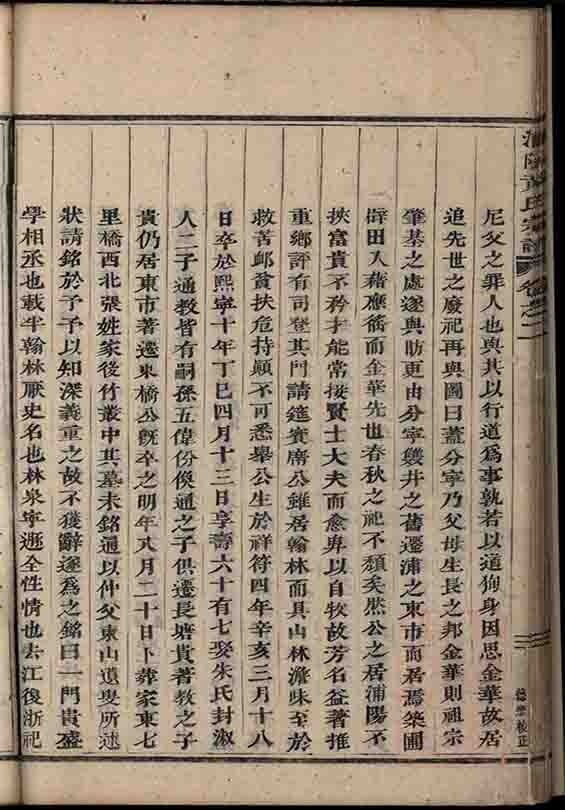 浦陽黃氏宗譜 卷之二
尼父之罪人也與其以行道爲事孰若以道狥身因思金華故居
追先世之廢祀再與圖曰蓋分寧乃父母生長之邦金華則祖宗
肇基之處遂與昉更由分寧雙井之舊遷浦之東市而居焉築圃
辟田入藉應篩而金華先也春秋之祀不頽矣然公之居浦陽不
挾富貴不矜才能常接賢士大夫而愈卑以自牧故芳名益著推
重鄉評有司登其門請筵賓席公雖居翰林而具山林澹味至於
救苦邮貧扶危持顚不可悉舉公生於祥符四年辛亥三月十八
日卒於熙寧十年丁巳四月十三日享壽六十有七娶朱氏封淑
人二子通教皆有嗣孫五偉份俊通之子供遷長塘貴著教之子
貴仍居東市著遷東橋公旣卒之明年八月二十日卜葬家東七
里橋西北張姓家後竹叢中其墓未銘通以仲父東山遺叟所述
狀請銘於予予以知深義重之故不獲辭遂爲之銘曰一門貴盛
學相丞也載半翰林厥史名也林泉寧遯全性情也去江復浙祀
德學校正